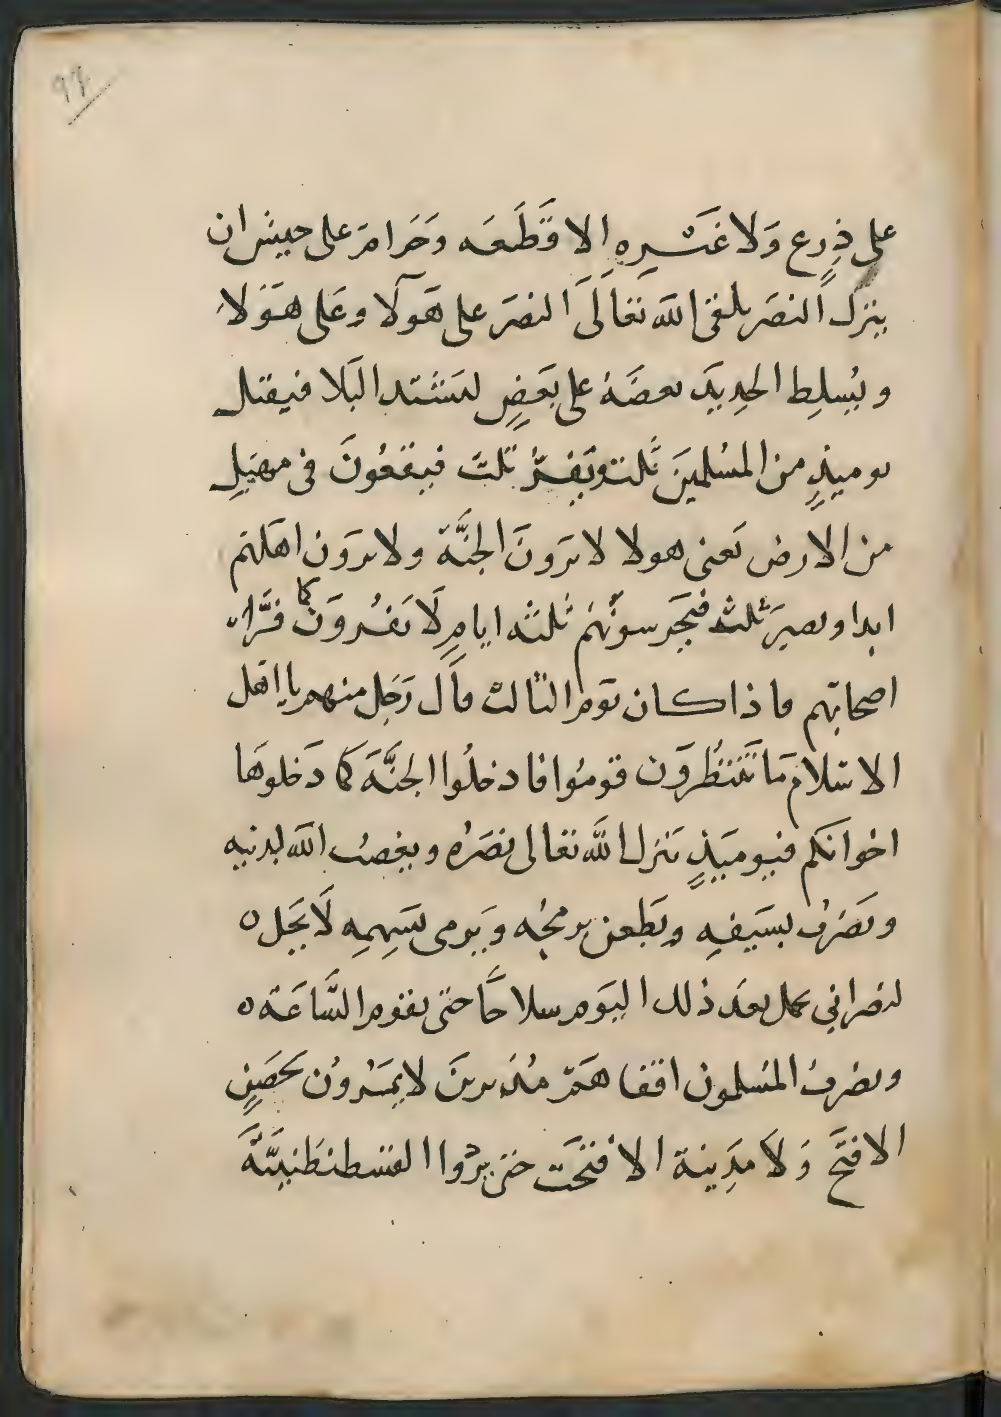 ٩٤
على ذِرع وَلا غَيْرِه الا قَطَعَه وَحَرامَ على جيش ان
ينزل النصَر يلقى الله تعَالَى النصَر على هَوَلا وعَلى هَوَلاء
ويُسلِط الحدِيدَ بعضَهُ على بَعَضٍ ليَشتَد البَلا فيقتل
يوميذٍ من المسُلمينَ ثَلث ويَفِرُّ ثلث فيقعُونَ فى مهَيلٍ
من الارض يَعنى هولا لا يَرَونَ الجنَّة ولا يرَون اهَلهم
ابدا ويصيرَ ثلث فيَحَرسونهُم ثلثه ايامٍ لَا يَفرُونَ كما فرَّ
اصحابَهم فاذا كان يَوم الثالث قاَل رَجل منهم يا اهل
الاسَلام مَا تَنتظُروَن قومُوا فادخلُوا الجنَّةَ كما دَخلوَها
اخوانكم فيوميَذٍ يَنزل الله تعَالى نصَرُه ويغضبُ الله لدينه
ويَضرُب بسَيفِه ويَطعن برمحُه ويَرمى بسَهِمه لَا يَحَل ه
لنصرانىٍ يحمل بعدَ ذلك اليَوم سلاحاً حتى يقوم السَّاعَة ه
ويضرُب المسُلمون اقفاهَم مُدَبرينَ لا يمَرُون بحَصَنٍ
الا فتَحَ وَلاَ مدَِينة الا فتحَت حتى يردُوا القسطنطنيَّة